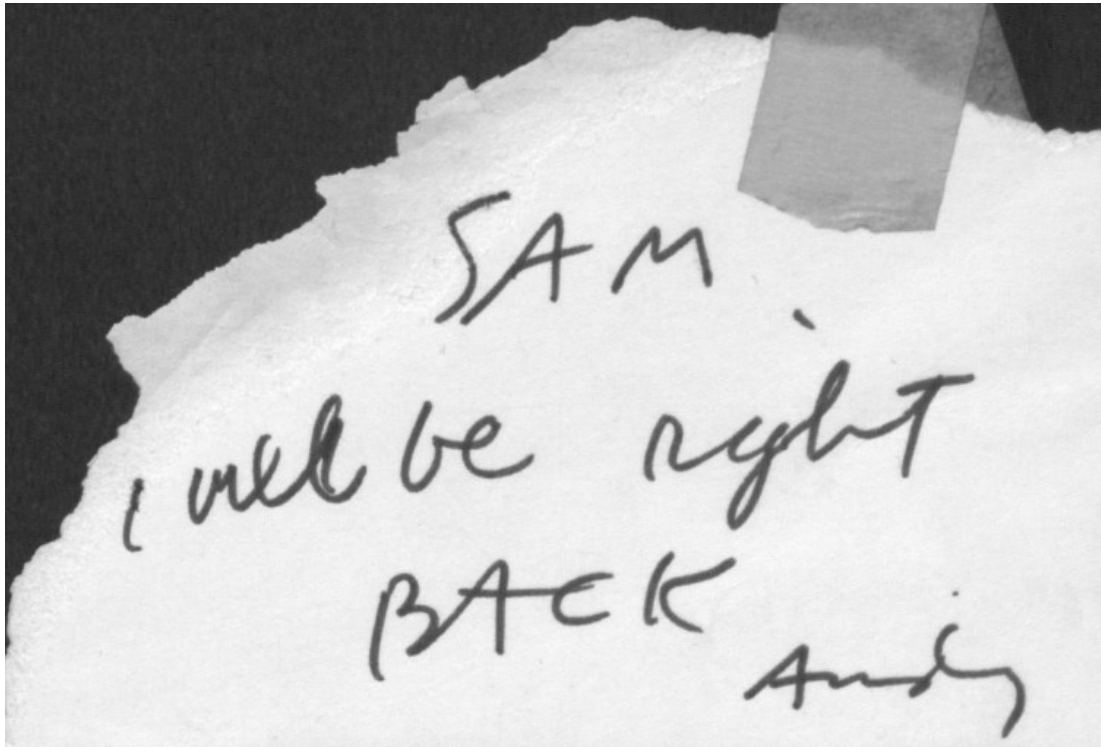 SAM
i will be right
BACK
Andy